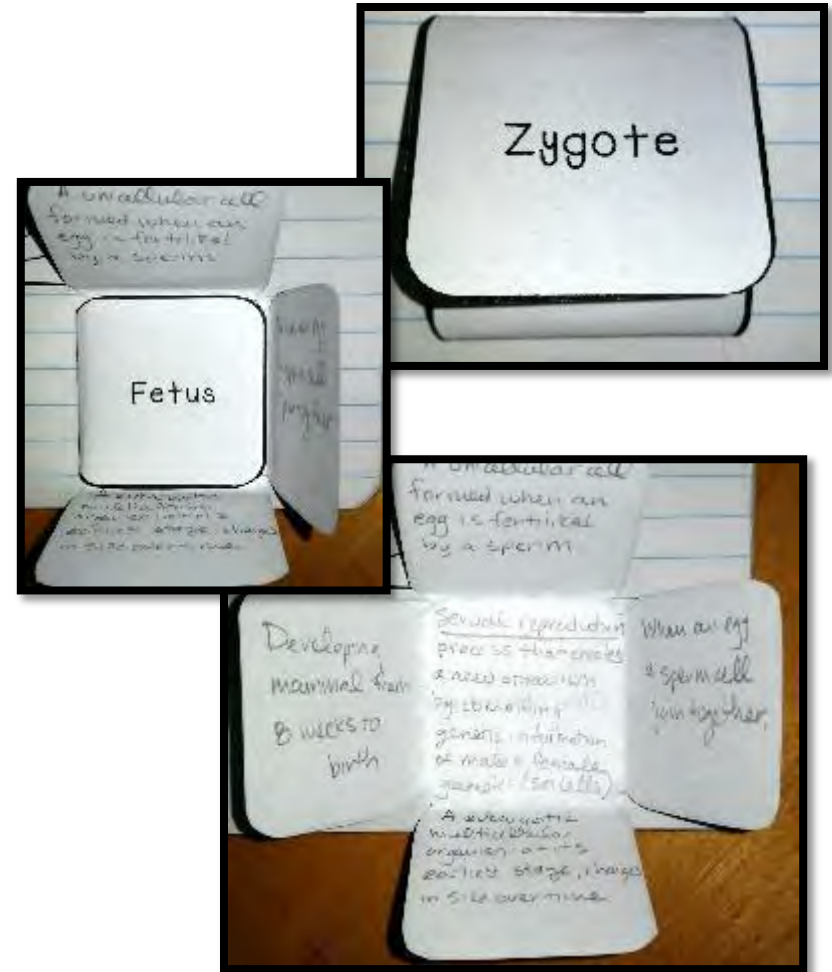 Zygote
A unicellular cell
formed when an
egg is fertilized
by a sperm
Fetus
When an egg
sperm cell
together
A eukaryotic
multicellular
organism at its
earliest stage, changes
in size over time
A unicellular cell
formed when an
egg is fertilized
by a sperm
Developing
mammal from
8 weeks to
birth
Sexual reproduction
process that creates
a new organism
by combining
genetic information
of male & female
gametes (sex cells)
When an egg
& sperm cell
join together.
A eukaryotic
multicellular
organism at its
earliest stage, changes
in size over time